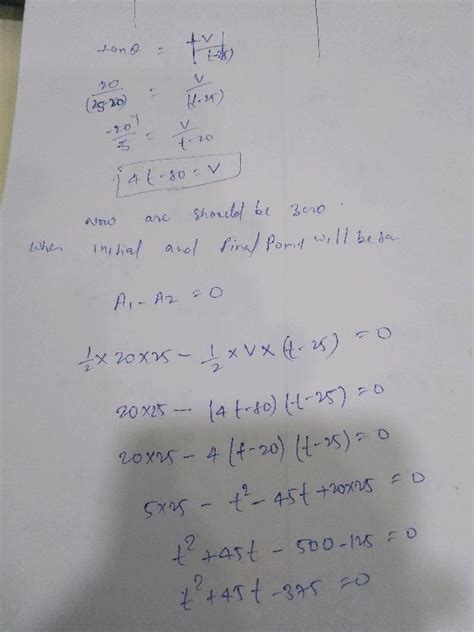 tanθ = V / (t-25)
20/(25-20) = V/(t-25)
-20/5 = V/t-20
4t-80 = V
Now are should be zero.
When initial and final Point will be sa
A1 - A2 = 0
1/2 × 20 × 25 - 1/2 × V × (t-25) = 0
20×25 - (4t-80)(t-25) = 0
20×25 - 4(t-20)(t-25) = 0
5×25 - t² - 45t + 20×25 = 0
t² + 45t - 500 - 125 = 0
t² + 45t - 375 = 0